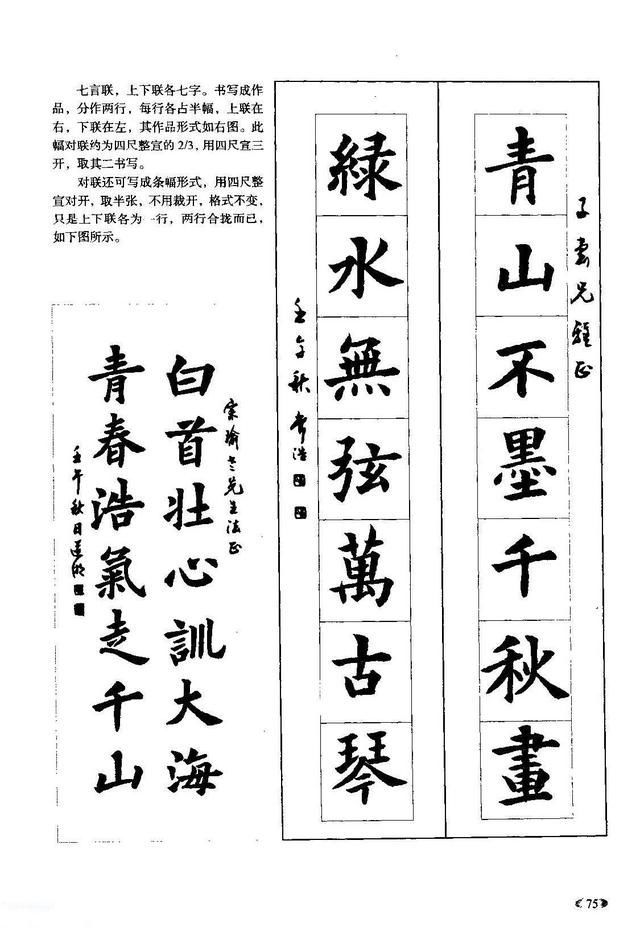 七言联，上下联各七字。书写成作
品，分作两行，每行各占半幅，上联在
右，下联在左，其作品形式如右图。此
幅对联约为四尺整宣的2/3，用四尺宣三
开，取其二书写。
对联还可写成条幅形式，用四尺整
宣对开，取半张，不用裁开，格式不变，
只是上下联各为一行，两行合拢而已，
如下图所示。
子云兄雅正
青山不墨千秋畫
綠水無弦萬古琴
壬午秋
白首壮心訓大海
青春浩氣走千山
壬午秋日
75